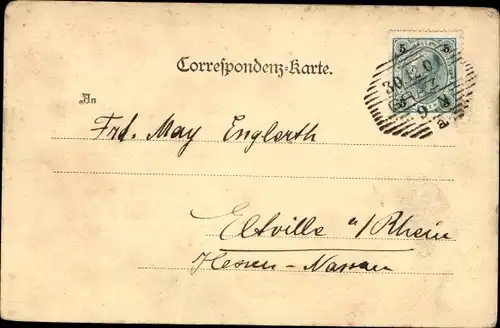 Correspondenz-Karte.
An
Frd. May Englerth
Eltville a/Rhein
Hessen-Nassau
5 5